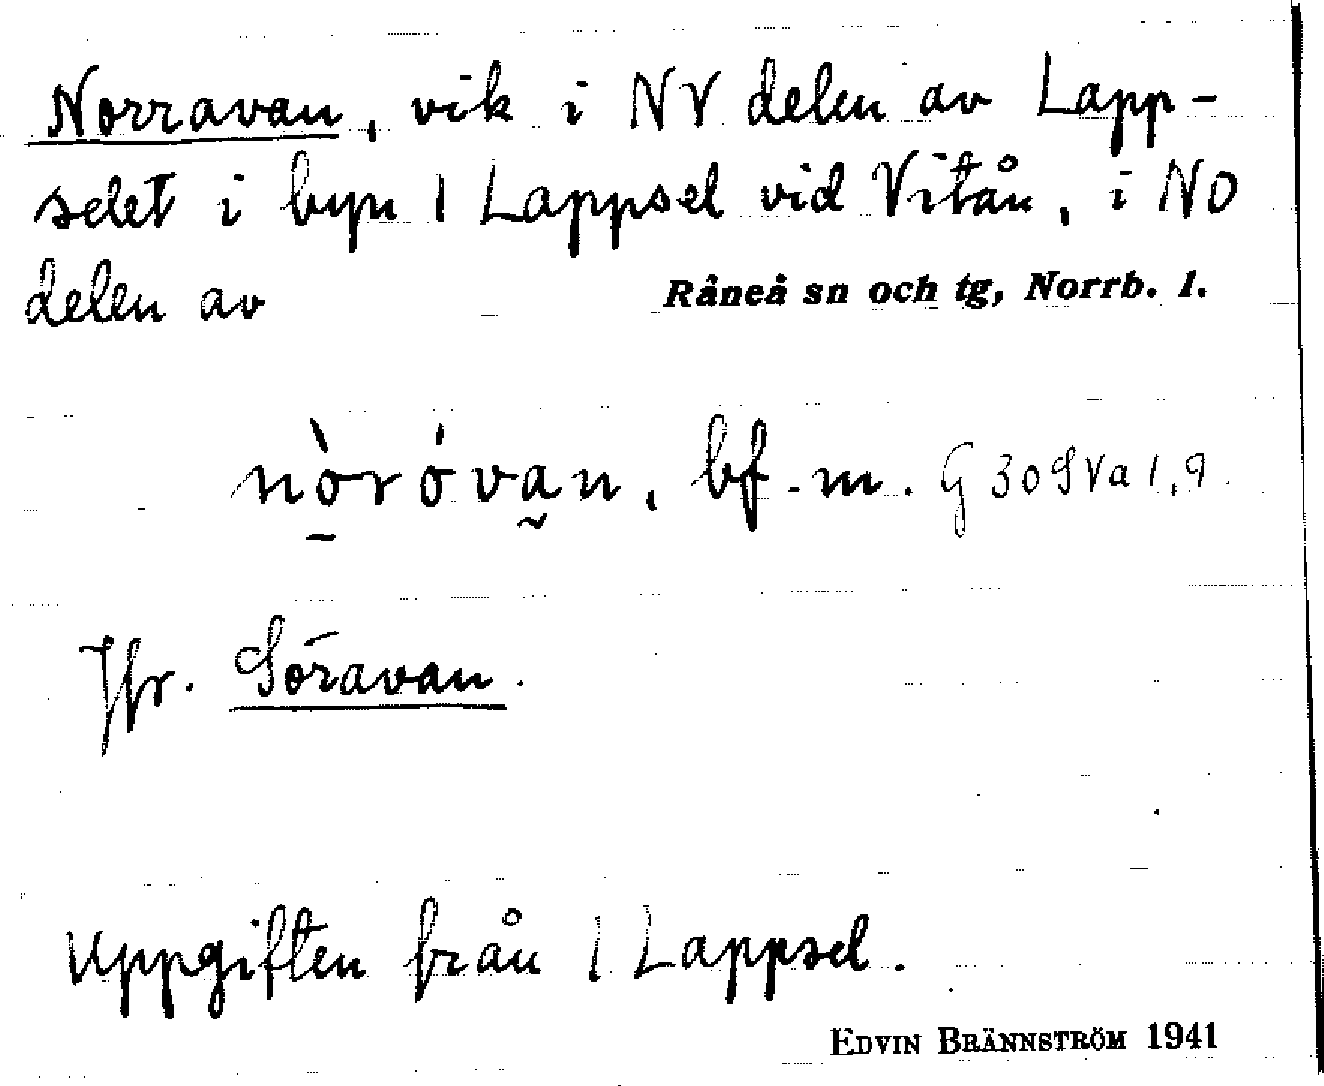 Norravan, vik i NV delen av Lapp-
selet i byn 1 Lappsel vid Vitån, i NO
delen av Råneå sn och tg, Norrb. l.
nòróvan, bf. m. G 30 SVa 1,9.
Jfr. Söravan.
Uppgiften från 1 Lappsel.
EDVIN BRÄNNSTRÖM 1941